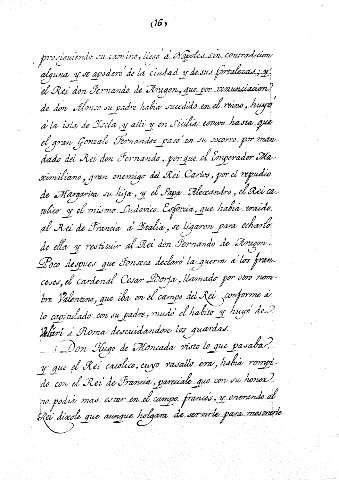 (16)
prosiguiendo su camino, llegó á Napoles sin contradicion
alguna y se apoderó de la ciudad y de sus fortalezas; y
el Rei don Fernando de Aragon, que por renunciacion
de don Alonso su padre habia sucedido en el reino, huyó
á la isla de Iscla, y alli y en Sicilia estuvo hasta que
el gran Gonzalo Fernandez pasó en su socorro por man-
dado del Rei don Fernando, por que el Emperador Ma-
ximiliano, gran enemigo del Rei Carlos, por el repudio
de Margarita su hija, y el Papa Alexandro, el Rei ca-
tolico y el mismo Ludovico Esforcia, que habia traido
al Rei de Francia á Italia, se ligaron para echarlo
de ella y restituir al Rei don Fernando de Aragon.
Poco despues que Fonseca declaró la guerra á los fran-
ceses, el cardenal Cesar Borja, llamado por otro nom-
bre Valentino, que iba en el campo del Rei conforme á
lo capitulado con su padre, mudó el habito y huyó de
Veletri á Roma descuidandose los guardas.
Don Hugo de Moncada visto lo que pasaba
y que el Rei catolico, cuyo vasallo era, habia rompi-
do con el Rei de Francia, parecióle que con su honor
no podia mas estar en el campo frances, y entrando al
Rei dixole que aunque holgara de servirle para mostrarle